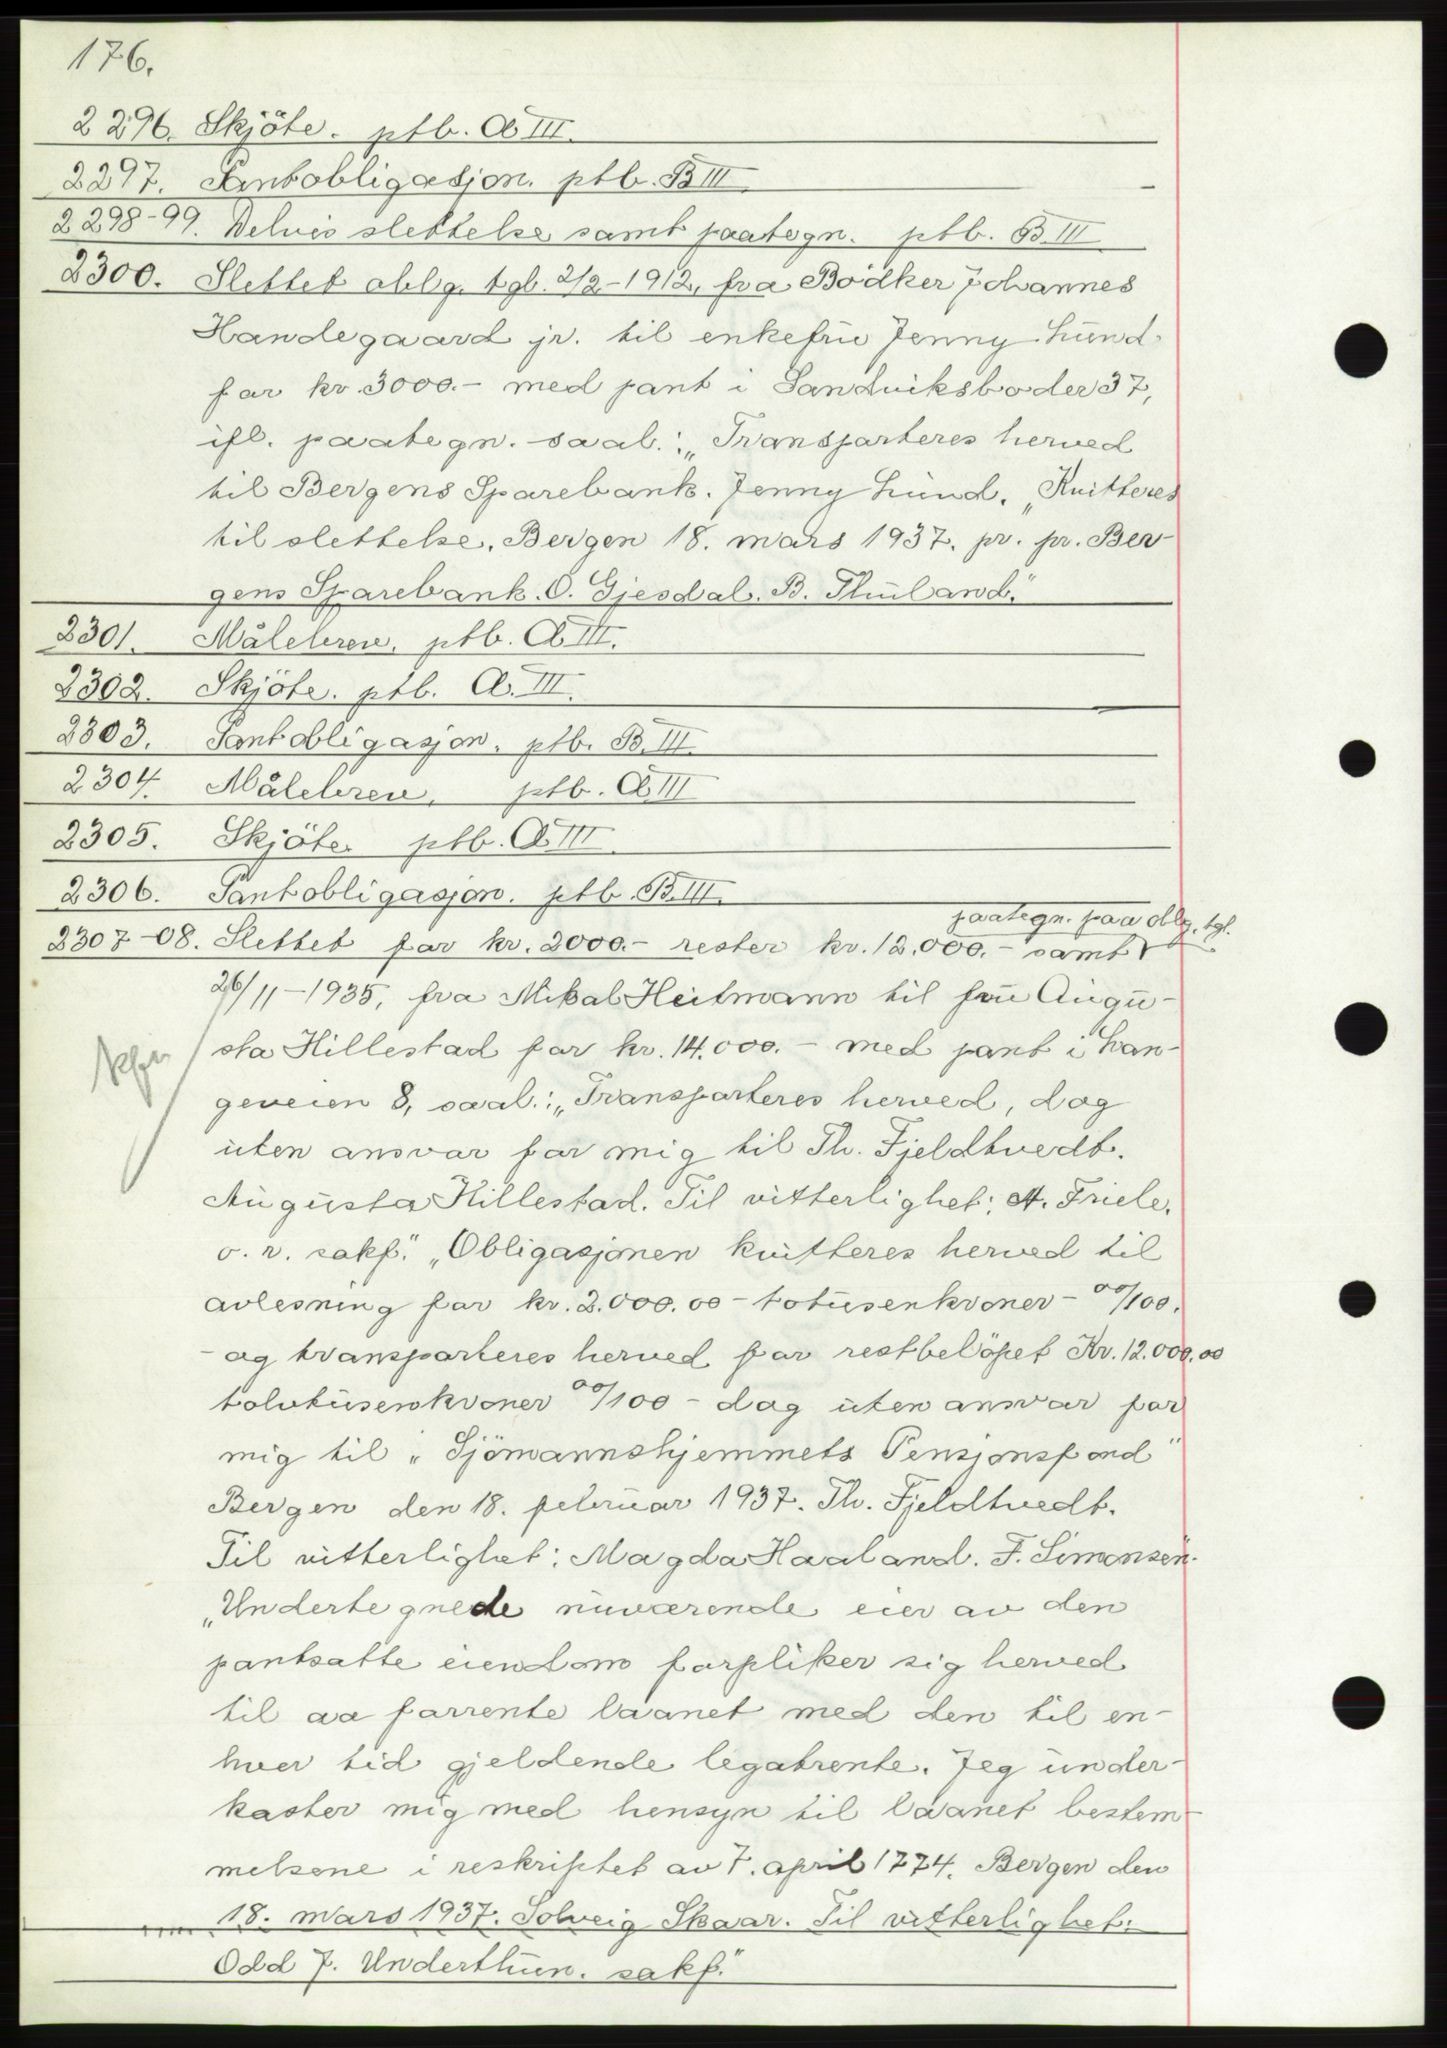 176.
2296. Skjöte. ptb. A III.
2297. Pantobligasjon. ptb. B III.
2298-99. Delvis slettelse samt paategn. ptb. B. III.
2300. Slettet oblg. tgl. 2/2-1912, fra Bödker Johannes
Handegaard jr. til enkefru Jenny Lund.
for kr. 3000.- med pant i Sandviksboder 37,
ifl. paategn. saal.: „Transporteres herved
til Bergens Sparebank. Jenny Lund. „Kvitteres
til slettelse. Bergen 18. mars 1937. pr. pr. Ber-
gens Sparebank. O. Gjesdal. B. Thuland."
2301. Målebrev. ptb. A III.
2302. Skjöte. ptb. A. III.
2303. Pantobligasjon. ptb. B. III.
2304. Målebrev. ptb. A III
2305. Skjöte. ptb. A III.
2306. Pantobligasjon. ptb. B. III.
paategn. paa oblg. tgl.
2307-08. Slettet for kr. 2000.- rester kr. 12.000.- samt
26/11-1935, fra Mikal Heitmann til fru Augu-
sta Hillestad for kr. 14.000.- med pant i Lan-
geveien 8, saal.: „Transporteres herved, dog
uten ansvar for mig til Th. Fjeldtvedt.
Augusta Hillestad. Til vitterlighet: A. Friele.
o. r. sakf." „Obligasjonen kvitteres herved til
avlesning for kr. 2.000.00 - totusenkroner - 00/100.
- og transporteres herved for restbelöpet Kr. 12.000.00
tolvtusenkroner 00/100 - dog uten ansvar for
mig til „Sjömannshjemmets Pensjonsfond"
Bergen den 18. februar 1937. Th. Fjeldtvedt.
Til vitterlighet: Magda Haaland. F. Simonsen".
„Undertegnede nuværende eier av den
pantsatte eiendom forpliker sig herved
til aa forrente laanet med den til en-
hver tid gjeldende legatrente. Jeg under-
kaster mig med hensyn til laanet bestem-
melsene i reskriptet av 7. april 1774. Bergen den
18. mars 1937. Solveig Skaar. Til vitterlighet:
Odd J. Underthun. sakf."